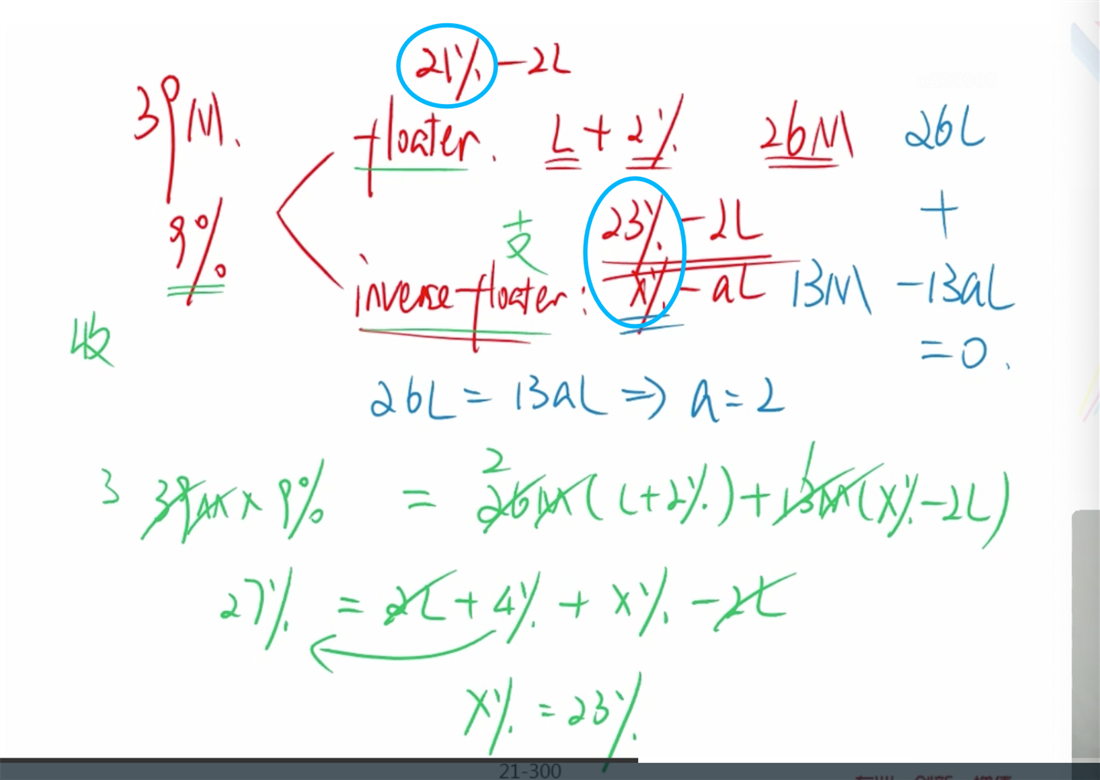 21% - 2L
39M.
floater. L + 2% 26M 26L
+
9%
支
23% - 2L
inverse floater: x% - aL 13M - 13aL
收
= 0.
26L = 13aL ⇒ a = 2
3 39M × 9% = 2 26M (L + 2%) + 1 13M (x% - 2L)
27% = 2L + 4% + x% - 2L
x% = 23%
21-300